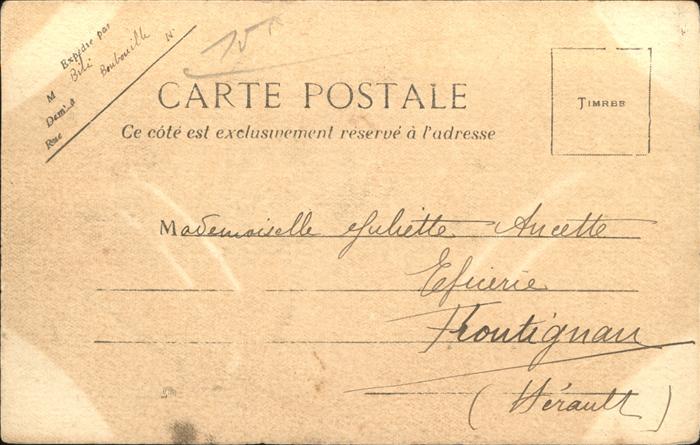 Expédié par
Bibi Boubouille
M
N°
Demt à
Rue
15
CARTE POSTALE
Ce côté est exclusivement réservé à l'adresse
TIMRES
Mademoiselle Juliette Ancette
Epicerie
Frontignan
(Hérault)